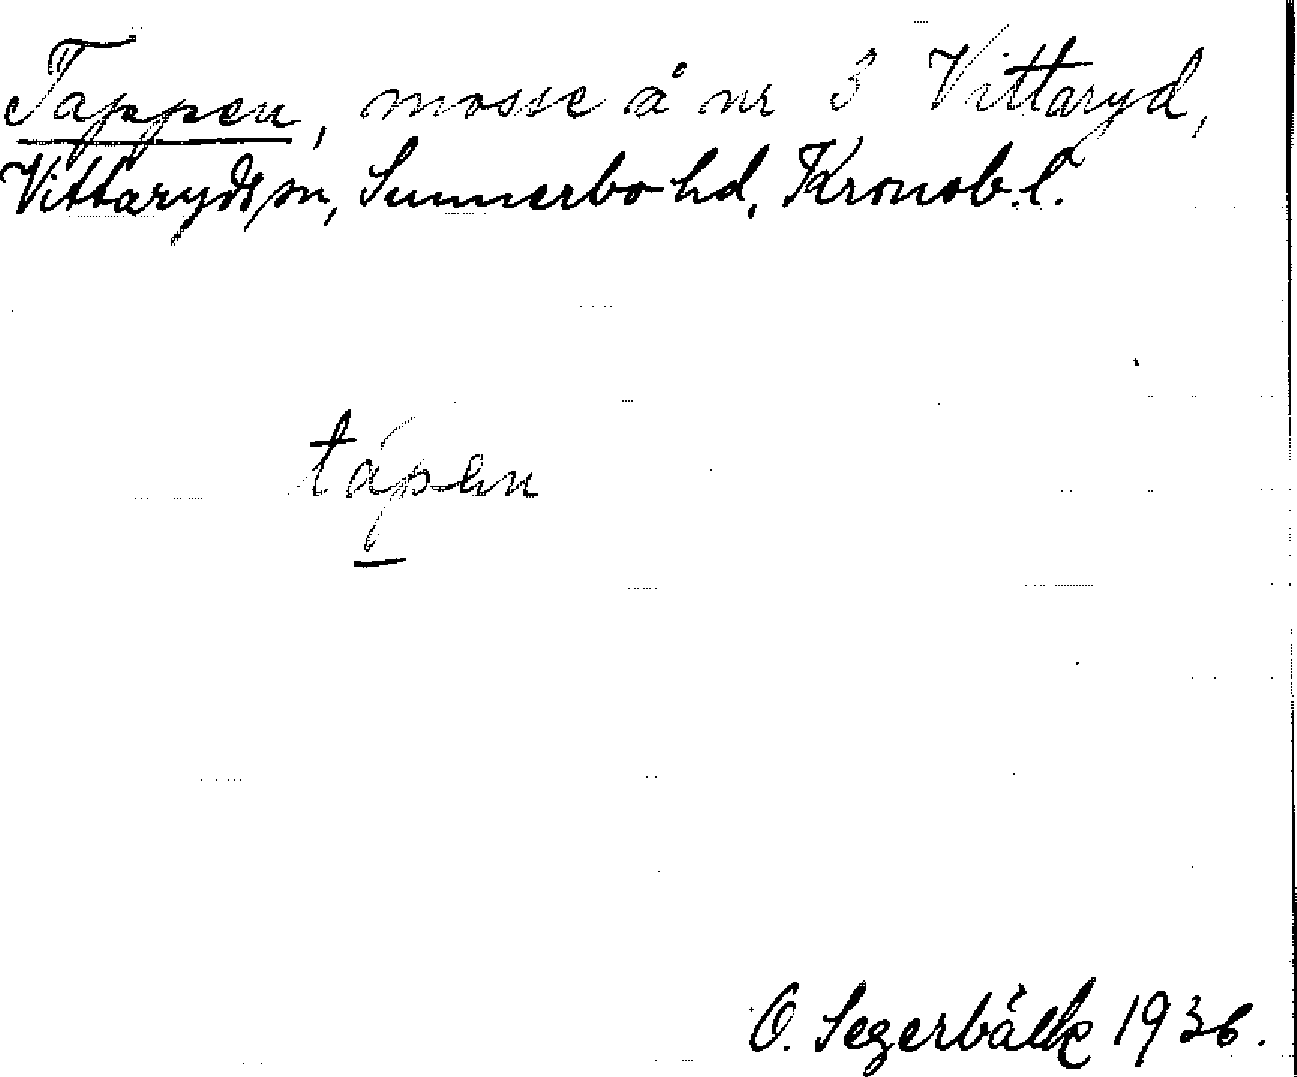 Tappen, mosse å nr 3 Vittaryd,
Vittaryds sn, Sunnerbo hd, Kronob. l.
tápen
O. Segerbäck 1936.